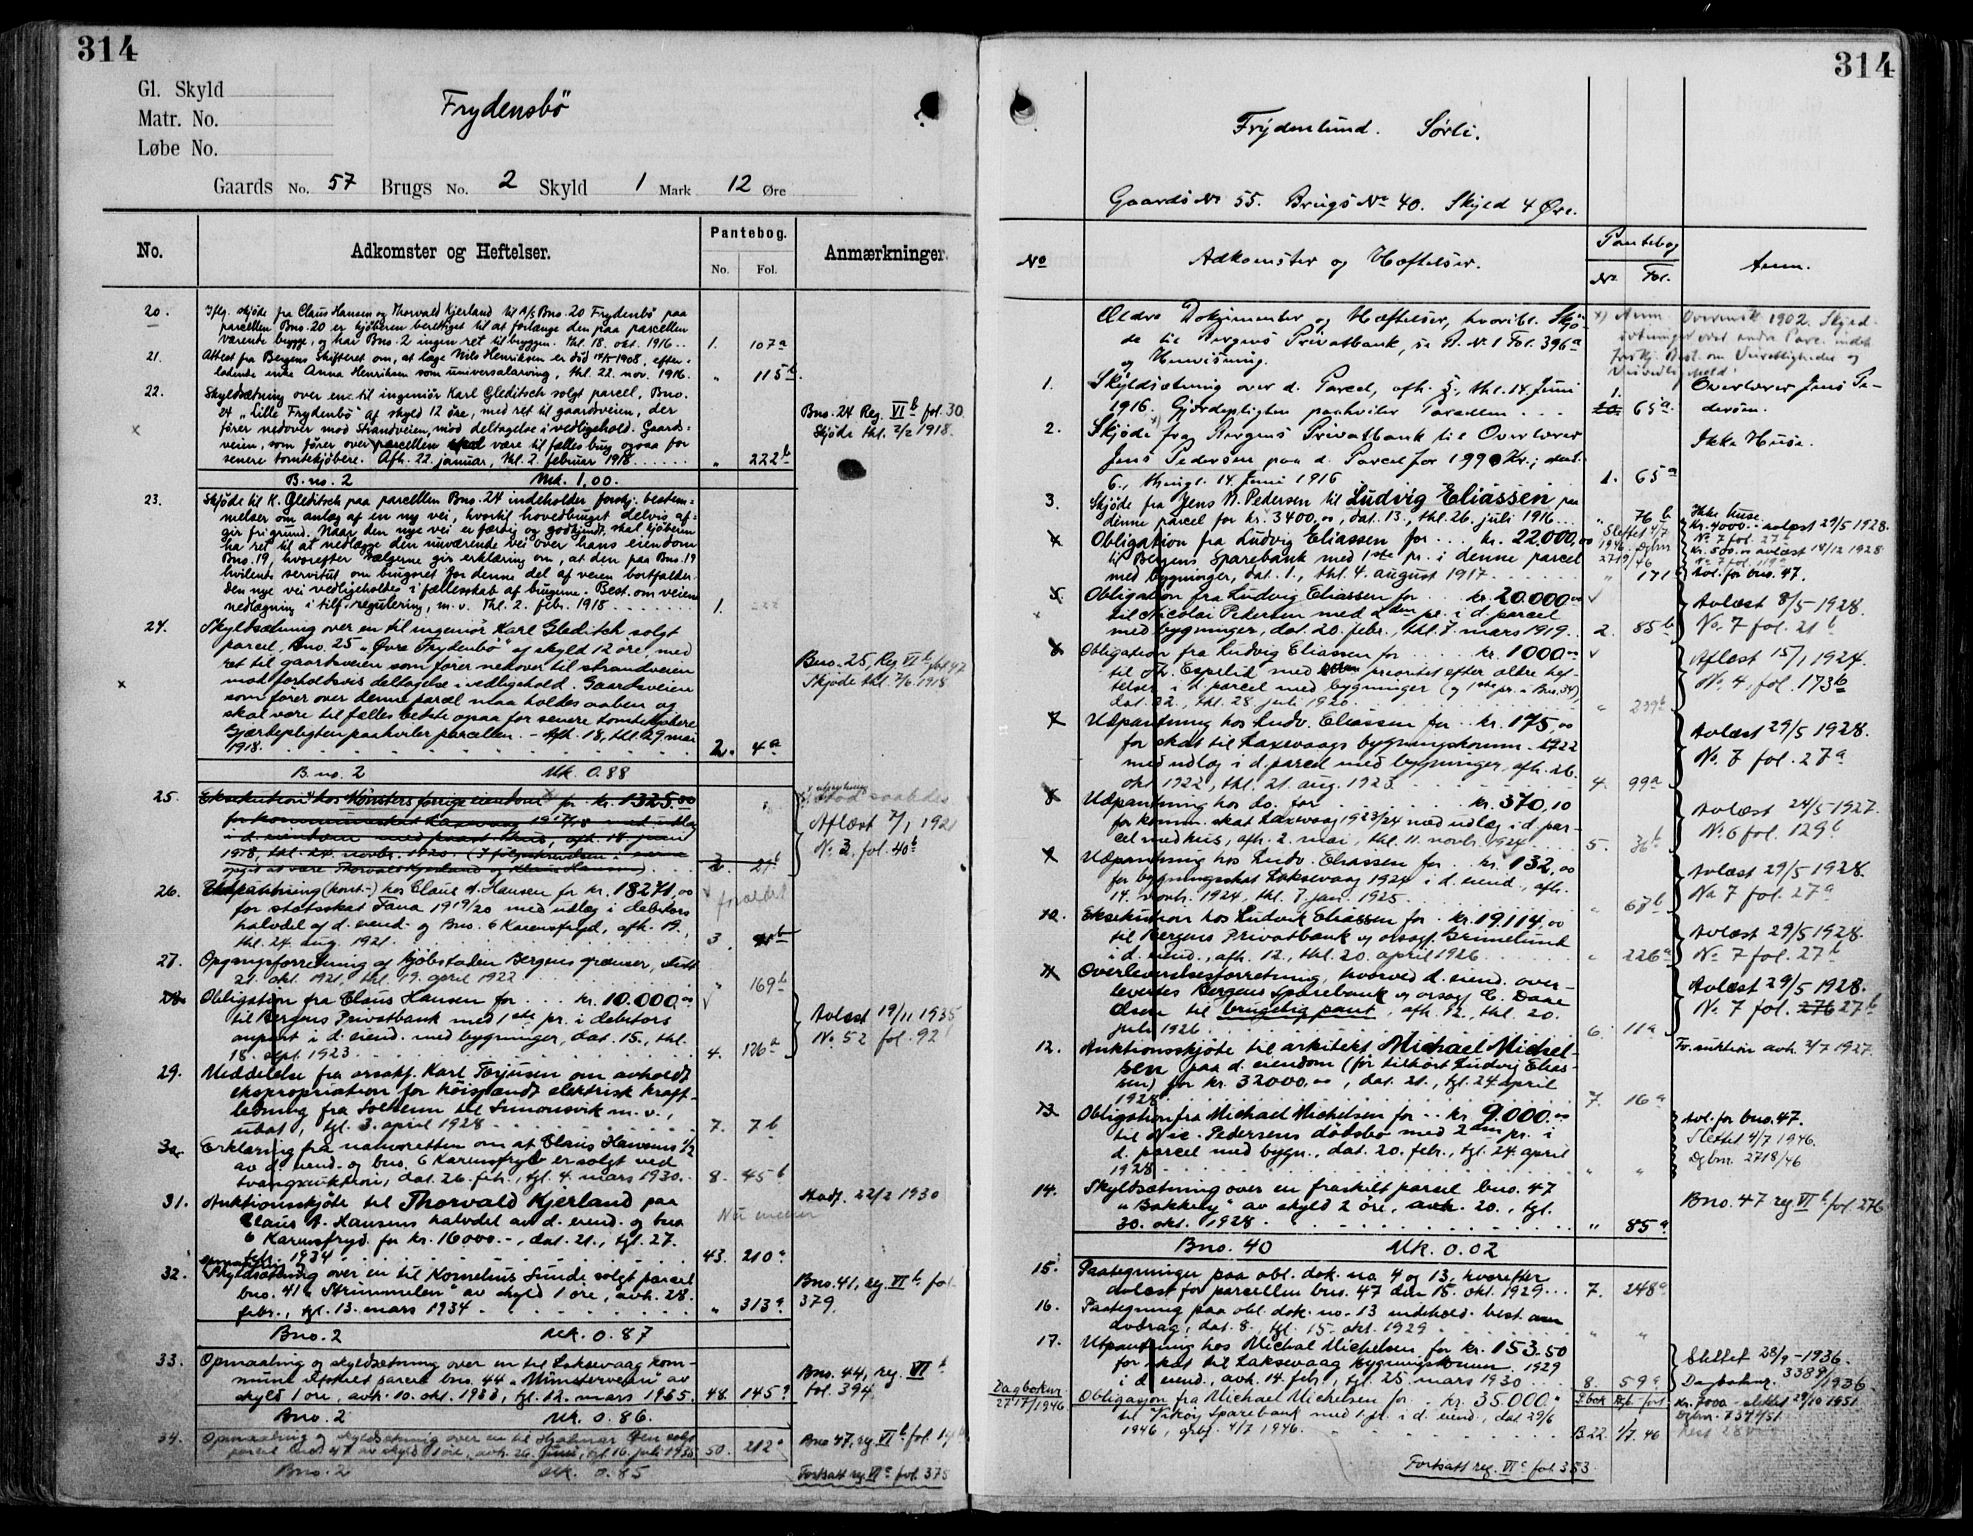 314
Gl. Skyld
Matr. No.
Løbe No.
Frydensbö
Gaards No. 57 Brugs No. 2 Skyld 1 Mark 12 Øre
No.
Adkomster og Heftelser.
Pantebog.
No. Fol.
Anmærkninger.
20. Iflg. skjöde fra Claus Hansen og Thorvald Kjerland til A/S Bno. 20 Frydensbö paa
parcellen Bno. 20 er kjöberen berettiget til at forlænge den paa parcellen
værende brygge, og har Bno. 2 ingen ret til bryggen. Thl. 18. okt. 1916.. 1. 107a
21. Attest fra Bergens Skifteret om, at Lage Nils Henriksen er död 1908, efter-
ladende enke Anna Henriksen som universalarving, thl. 22. nov. 1916. " 115b.
22. Skyldsætning over en til ingeniör Karl Gleditsch solgt parcel, Bno.
24 „Lille Frydenbö" af skyld 12 öre, med ret til gaardsveien, der
förer nedover mod Strandveien, mod deltagelse i vedligehold. Gaards-
veien, som förer over parcellen skal være til fælles brug ogsaa for
senere tomtekjöbere. Afh. 22. januar, thl. 2. februar 1918...... " 222b
Bno. 24 Reg. VIb fol. 30.
Skjöde thl. 2/2 1918.
B. no. 2 Mk. 1,00.
23. Skjöde til K. Gleditsch paa parcellen Bno. 24 indeholder forskj. bestem-
melser om anlæg af en ny vei, hvortil hovedbruget delvis af-
gir fri grund. Naar den nye vei er færdig og godkjendt, skal kjöberen
ha ret til at nedlægge den nuværende vei over hans eiendom
Bno. 19, hvorefter sælgerne gir erklæring om, at den paa Bno. 19
hvilende servitut om brugsret for denne del af veien bortfalder.
Den nye vei vedligeholdes i fællesskab af brugerne. Best. om veiens
nedlægning i tilf. regulering, m. v. Thl. 2. febr. 1918....... 1. 222
24. Skyldsætning over en til ingeniør Karl Gleditch solgt
parcel, Bno. 25 „Øvre Frydenbö" af skyld 12 öre, med
ret til gaardsveien som förer nedover til strandveien
mod forholdsvis deltagelse i vedligehold. Gaardsveien
som förer over denne parcel maa holdes aaben og
skal være til fælles bedste ogsaa for senere tomtekjöbere
Gjærdepligten paahviler parcellen. - Afh. 18, thl. 29 mai
1918. 2. 4a
Bno. 25, Reg VIb fol 47
Skjøde thl. 7/6. 1918.
B. no. 2 Mk. 0.88
25. Eksekution hos Mønsters forrige eiendom for kr. 1325.00
for kommuneskat Laxevaag 1917/18 med udlæg
i d. eiendom med paast. hus, afh. 14. juni
1918, thl. 24. novbr. 1920.
opgit at være Thorvald Kjerland og Klaus Hansen) 2. 27b
Aflæst 7/1 1921
No 3. fol. 40b
26. Udpantning (kont.-) hos Claus A. Hansen for kr. 18271,00
for statsskat Fana 1919/20 med udlæg i debitors
halvdel af d. eiend. og Bno. 6 Karensfryd, afh. 19.,
thl. 24. aug. 1921. 3.
forældet
27. Opgangsforretning af Kjöbstaden Bergens grænser,
21. okt. 1921, thl. 19. april 1922 " 169b
28. Obligation fra Claus Hansen for ... kr. 10.000.00
til Bergens Privatbank med 1ste pr. i debitors
anpart i d. eiend. med bygninger, dat. 15., thl.
18. sept. 1923. 4. 126a
Avlæst 19/11 1935
No 52 fol. 92
29. Meddelelse fra orsakf. Karl Torjusen om avholdt
ekspropriation for höispændt elektrisk kraft-
ledning fra Solheim til Simonsvik m. v.,
udat., tgl. 3. april 1928 7. 7b
30. Erklæring fra namsretten om at Claus Hansens 1/2
av d. eiend. og bno. 6 Karensfryd er solgt ved
tvangsauktion, dat. 26. febr., tgl. 4. mars 1930. 8. 45b
31. Auktionsskjöte til Thorvald Kjerland paa
Claus A. Hansens halvdel av d. eiend. og bno
6 Karensfryd. for kr. 16000.-, dat. 21., tgl. 27.
febr. 1934 43. 210a
Stadf. 22/2 1930
32. Skyldsætning over en til Kornelius Sunde solgt parcel
bno. 41 „Strimmelen" av skyld 1 øre, avh. 28.
febr., tgl. 13. mars 1934 " 313a.
Bno. 41, reg. VIb, fol.
379.
Bno. 2 Mk. 0.87
33. Opmaaling og skyldsætning over en til Laksevaag kom-
mune utskilt parcel bno. 44 „Münsterveien" av
skyld 1 öre, avh. 10. okt. 1933, tgl. 12. mars 1935. 48. 145a
Bno. 44, reg. VIb
fol. 394.
Bno. 2 Mk. 0.86.
34. Opmaaling og skyldsætning over en til Hjalmar solgt
parcel bno. 47 av skyld 1 øre, avh. 26. juni, tgl. 16. juli 1935 50. 212a
Bno 47, reg VIb fol.
Bno. 2 Mk. 0.85
Fortsatt reg. VIc fol. 375
314
Frydenlund. Sörli.
Gaards No 55. Brugs No 40. Skyld 4 Øre.
No
Adkomster og Hæftelser.
Pantebog
No Fol.
Anm.
Ældre Dokumenter og Hæftelser, hvoribl. Skjö-
de til Bergens Privatbank, se R. No 1 Fol. 396a
og Henvisning.
1. Skyldsætning over d. Parcel, afh. 3., thl. 14. Juni
1916. Gjærdepligten paahviler Parcellen . . . 1. 65a.
Overlærer Jens Pe-
dersen.
2. Skjöde fra Bergens Privatbank til Overlærer
Jens Pedersen paa d. Parcel for 1990 Kr.; dat.
6., thingl. 14. Juni 1916 1. 65a
Ikke Huse.
3. Skjøde fra Jens N. Pedersen til Ludvig Eliassen paa
denne parcel for kr. 3400,00, dat. 13., thl. 26. juli 1916... " 76b
Ikke huse.
4. Obligation fra Ludvig Eliassen for ... kr. 22000,00
til Bergens Sparebank med 1ste pr. i denne parcel
med bygninger, dat. 1., thl. 4. august 1917. " 171
Slettet 4/7
1946. Dgbnr
2719/46
kr. 4000.- avlæst 29/5 1928.
No 7 fol. 27b
kr. 500.00 avlæst 14/12 1928
Avl. for bno. 47.
5. Obligation fra Ludvig Eliassen for .. kr. 20.000,00
til Nicolai Petersen med 2den pr. i d. parcel
med bygninger, dat. 20. febr., thl. 7. mars 1919. 2. 85b
Avlæst 8/5-1928.
No. 7 fol. 21b
6. Obligation fra Ludvig Eliassen for .... kr. 1000,00
til Th. Espelid med prioritet efter ældre hef-
telser i d. parcel med bygninger (og 1ste pr. i Bno. 34),
dat. 22., thl. 28. juli 1920 " 239b
Aflæst 15/1 1924.
No. 4, fol. 173b
7. Udpantning hos Ludv. Eliassen for .. kr. 175,00
for skat til Laxevaags bygningskomm. 1922
med udlæg i d. parcel med bygninger, afh. 26.
okt. 1922, thl. 21. aug. 1923 4. 99a
Avlæst 29/5 1928.
No. 7 fol. 27a
8. Udpantning hos do. for kr. 370,10
for komm. skat Laxevaag 1923/24 med udlæg i d. par-
cel med hus, afh. 2. mai, thl. 11. novbr. 1924. 5. 36b
Avlæst 24/5-1927.
No. 6 fol. 129b
9. Udpantning hos Ludv. Eliassen for .. kr. 132,00
for bygningsskat Laksevaag 1924 i d. eiend., afh.
14. novbr. 1924, thl. 7. jan. 1925. " 67b
Avlæst 29/5 1928.
No 7 fol. 27a
10. Eksekution hos Ludvik Eliassen for . kr. 19.114,00
til Bergens Privatbank og orsakf. Grimelund
i d. eiend., afh. 12., thl. 20. april 1926 " 226a
Avlæst 29/5 1928.
No 7 fol. 27b
11. Overleverelsesforretning, hvorved d. eiend. over-
leverdes Bergens Sparebank og orsakf C. Daae
Olsen til brugelig pant, afh. 12., thl. 20.
juli 1926. 6. 11a
Avlæst 29/5 1928.
No. 7 fol. 276 27b
12. Auktionsskjöte til arkitekt Michael Michel-
sen paa d. eiendom (för tilhört Ludvig Elias-
sen) for kr. 32000.00, dat. 21., tgl. 24 april
1928. 7. 16a
Tv. auktion avh. 2/7 1927.
13. Obligation fra Michael Michelsen for .. kr. 9.000.00
til Nic. Pedersens dödsbo med 2den pr. i
d. parcel med bygn., dat. 20. febr., tgl. 24. april
1928 " "
Avl. for bno. 47.
Slettet 4/7 1946.
Dgbnr. 2718/46
14. Skyldsætning over en fraskilt parcel bno. 47
„Bakkely" av skyld 2 öre, avh. 20., tgl.
30. okt. 1928 " 85a
Bno. 47 reg VIb fol. 276
Bno. 40 Mk. 0.02
15. Paategninger paa obl. dok. no. 4 og 13, hvorefter
avlæst for parcellen bno. 47 den 15. okt. 1929... 7. 248a
16. Paategning paa obl. dok. no. 13 indehold. best. om
avdrag, dat. 8., tgl. 15. okt. 1929 " "
17. Utpantning hos Michal Michelsen for kr. 153.50
for skat til Laksevaag bygningskomm. 1929
i d. eiend., avh. 14. febr., tgl. 25. mars 1930 8. 59a
Slettet 28/9-1936.
Dagboknr. 3383/1936.
Dagboknr.
2717/1946
Obligasjon fra Michael Michelsen for .. kr. 35.000.-
til Vikøy Sparebank med 1. pr. i d. eiend., dat 29/6
1946, 4/7 1946. B22. 4/7. 46
kr. 7000 - slettet 29/10 1951
Dgbnr. 7374/51.
Fortsatt reg. VIc fol 353